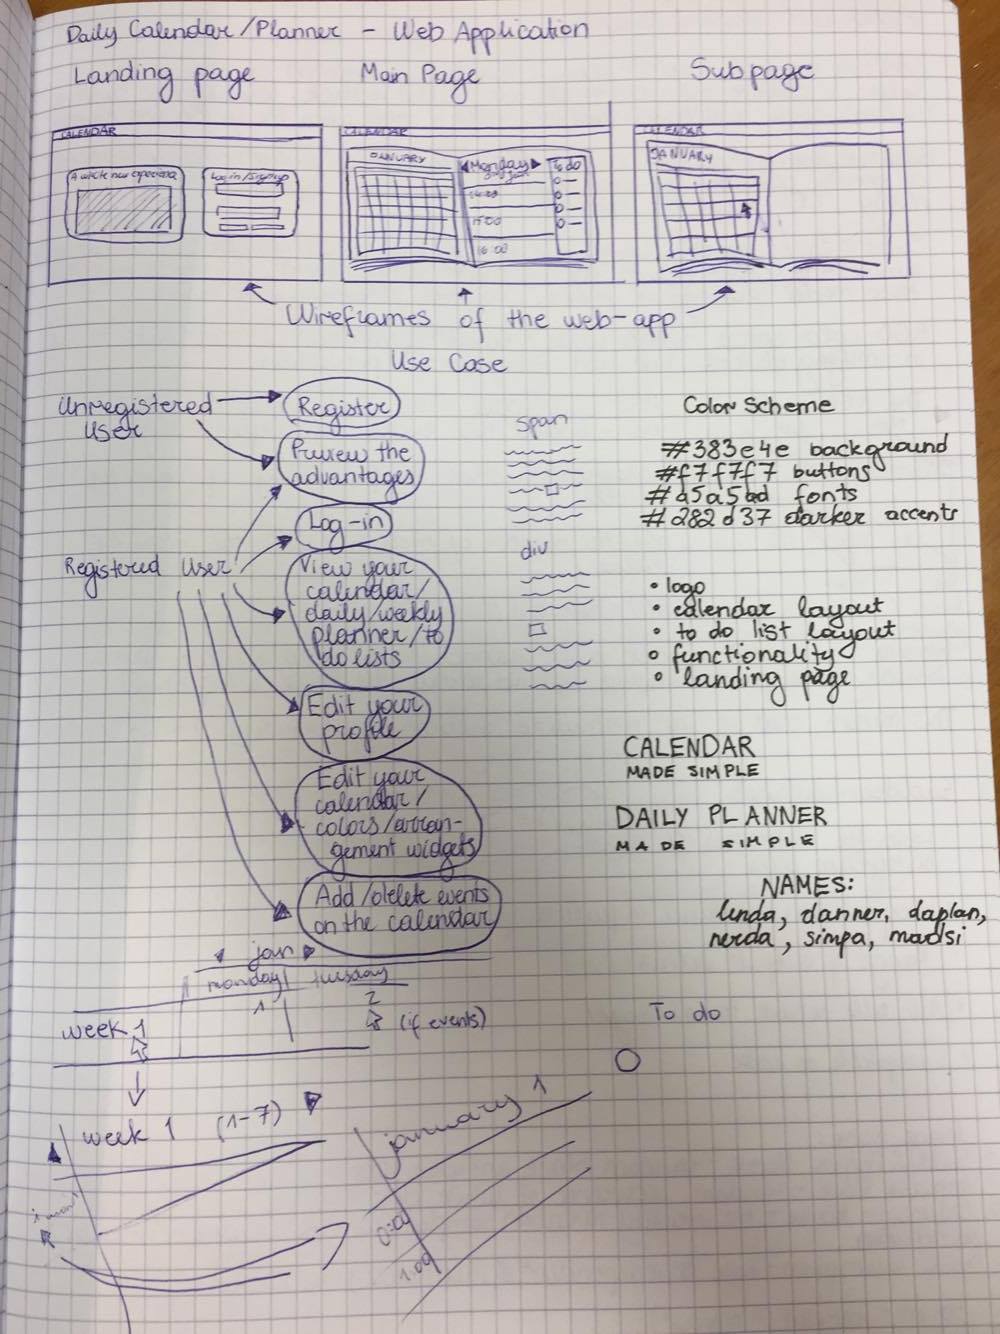 Daily Calendar/Planner - Web Application
Landing page
Main Page
Subpage
CALENDAR
A whole new experience
Log in/Signup
CALENDAR
JANUARY
Monday
To do
14:00
15:00
16:00
CALENDAR
JANUARY
Wireframes of the web-app
Use Case
Unregistered
User
Register
Preview the
advantages
Log-in
Registered User
View your
calendar/
daily/weekly
planner/to
do lists
Edit your
profile
Edit your
calendar/
colors/arran-
gement widgets
Add/delete events
on the calendar
span
div
Color Scheme
#383e4e background
#f7f7f7 buttons
#a5a5ad fonts
#282d37 darker accents
• logo
• calendar layout
• to do list layout
• functionality
• landing page
CALENDAR
MADE SIMPLE
DAILY PLANNER
MADE SIMPLE
NAMES:
linda, danner, daplan,
nerda, simpa, madsi
jan
monday tuesday
1 2
week 1
(if events)
To do
week 1 (1-7)
january 1